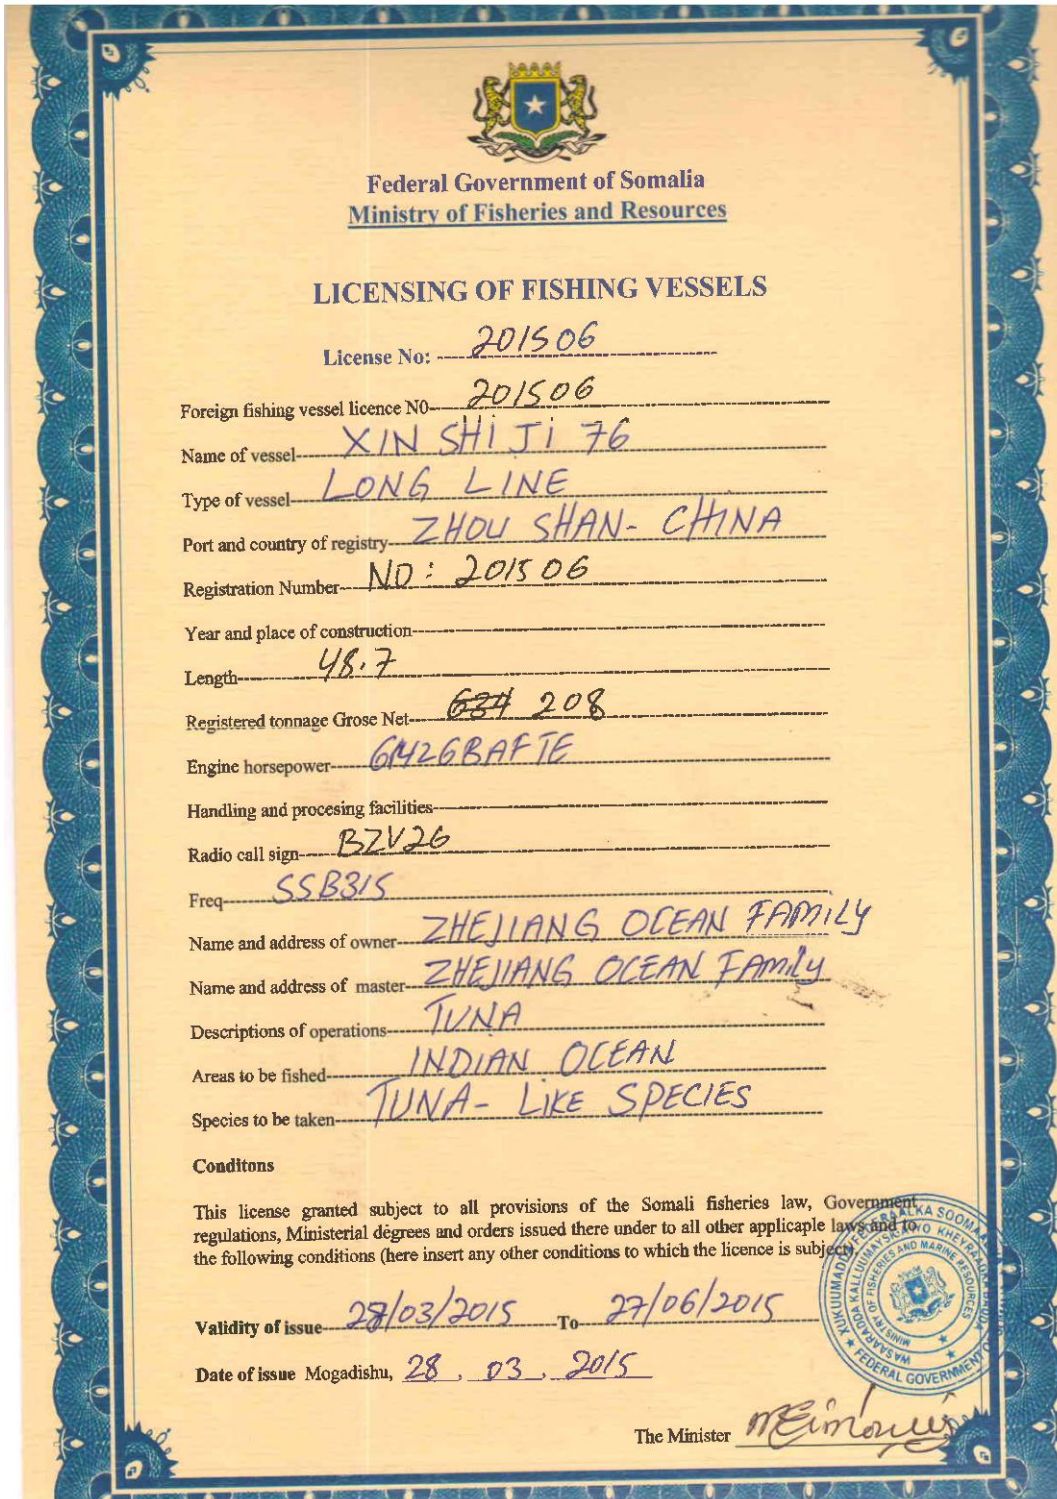 Federal Government of Somalia
Ministry of Fisheries and Resources
LICENSING OF FISHING VESSELS
License No: 201506
Foreign fishing vessel licence N0 201506
Name of vessel XIN SHI JI 76
Type of vessel LONG LINE
Port and country of registry ZHOU SHAN- CHINA
Registration Number NO: 201506
Year and place of construction
Length 48.7
Registered tonnage Grose Net 634 208
Engine horsepower 6M26BAFTE
Handling and procesing facilities
Radio call sign BZV26
Freq SSB315
Name and address of owner ZHEJIANG OCEAN FAMILY
Name and address of master ZHEJIANG OCEAN FAMILY
Descriptions of operations TUNA
Areas to be fished INDIAN OCEAN
Species to be taken TUNA- LIKE SPECIES
Conditons
This license granted subject to all provisions of the Somali fisheries law, Government
regulations, Ministerial degrees and orders issued there under to all other applicaple laws and to
the following conditions (here insert any other conditions to which the licence is subject).
Validity of issue 28/03/2015 To 27/06/2015
Date of issue Mogadishu, 28 . 03 . 2015
The Minister
MINISTRY OF FISHERIES AND MARINE RESOURCES
FEDERAL GOVERNMENT